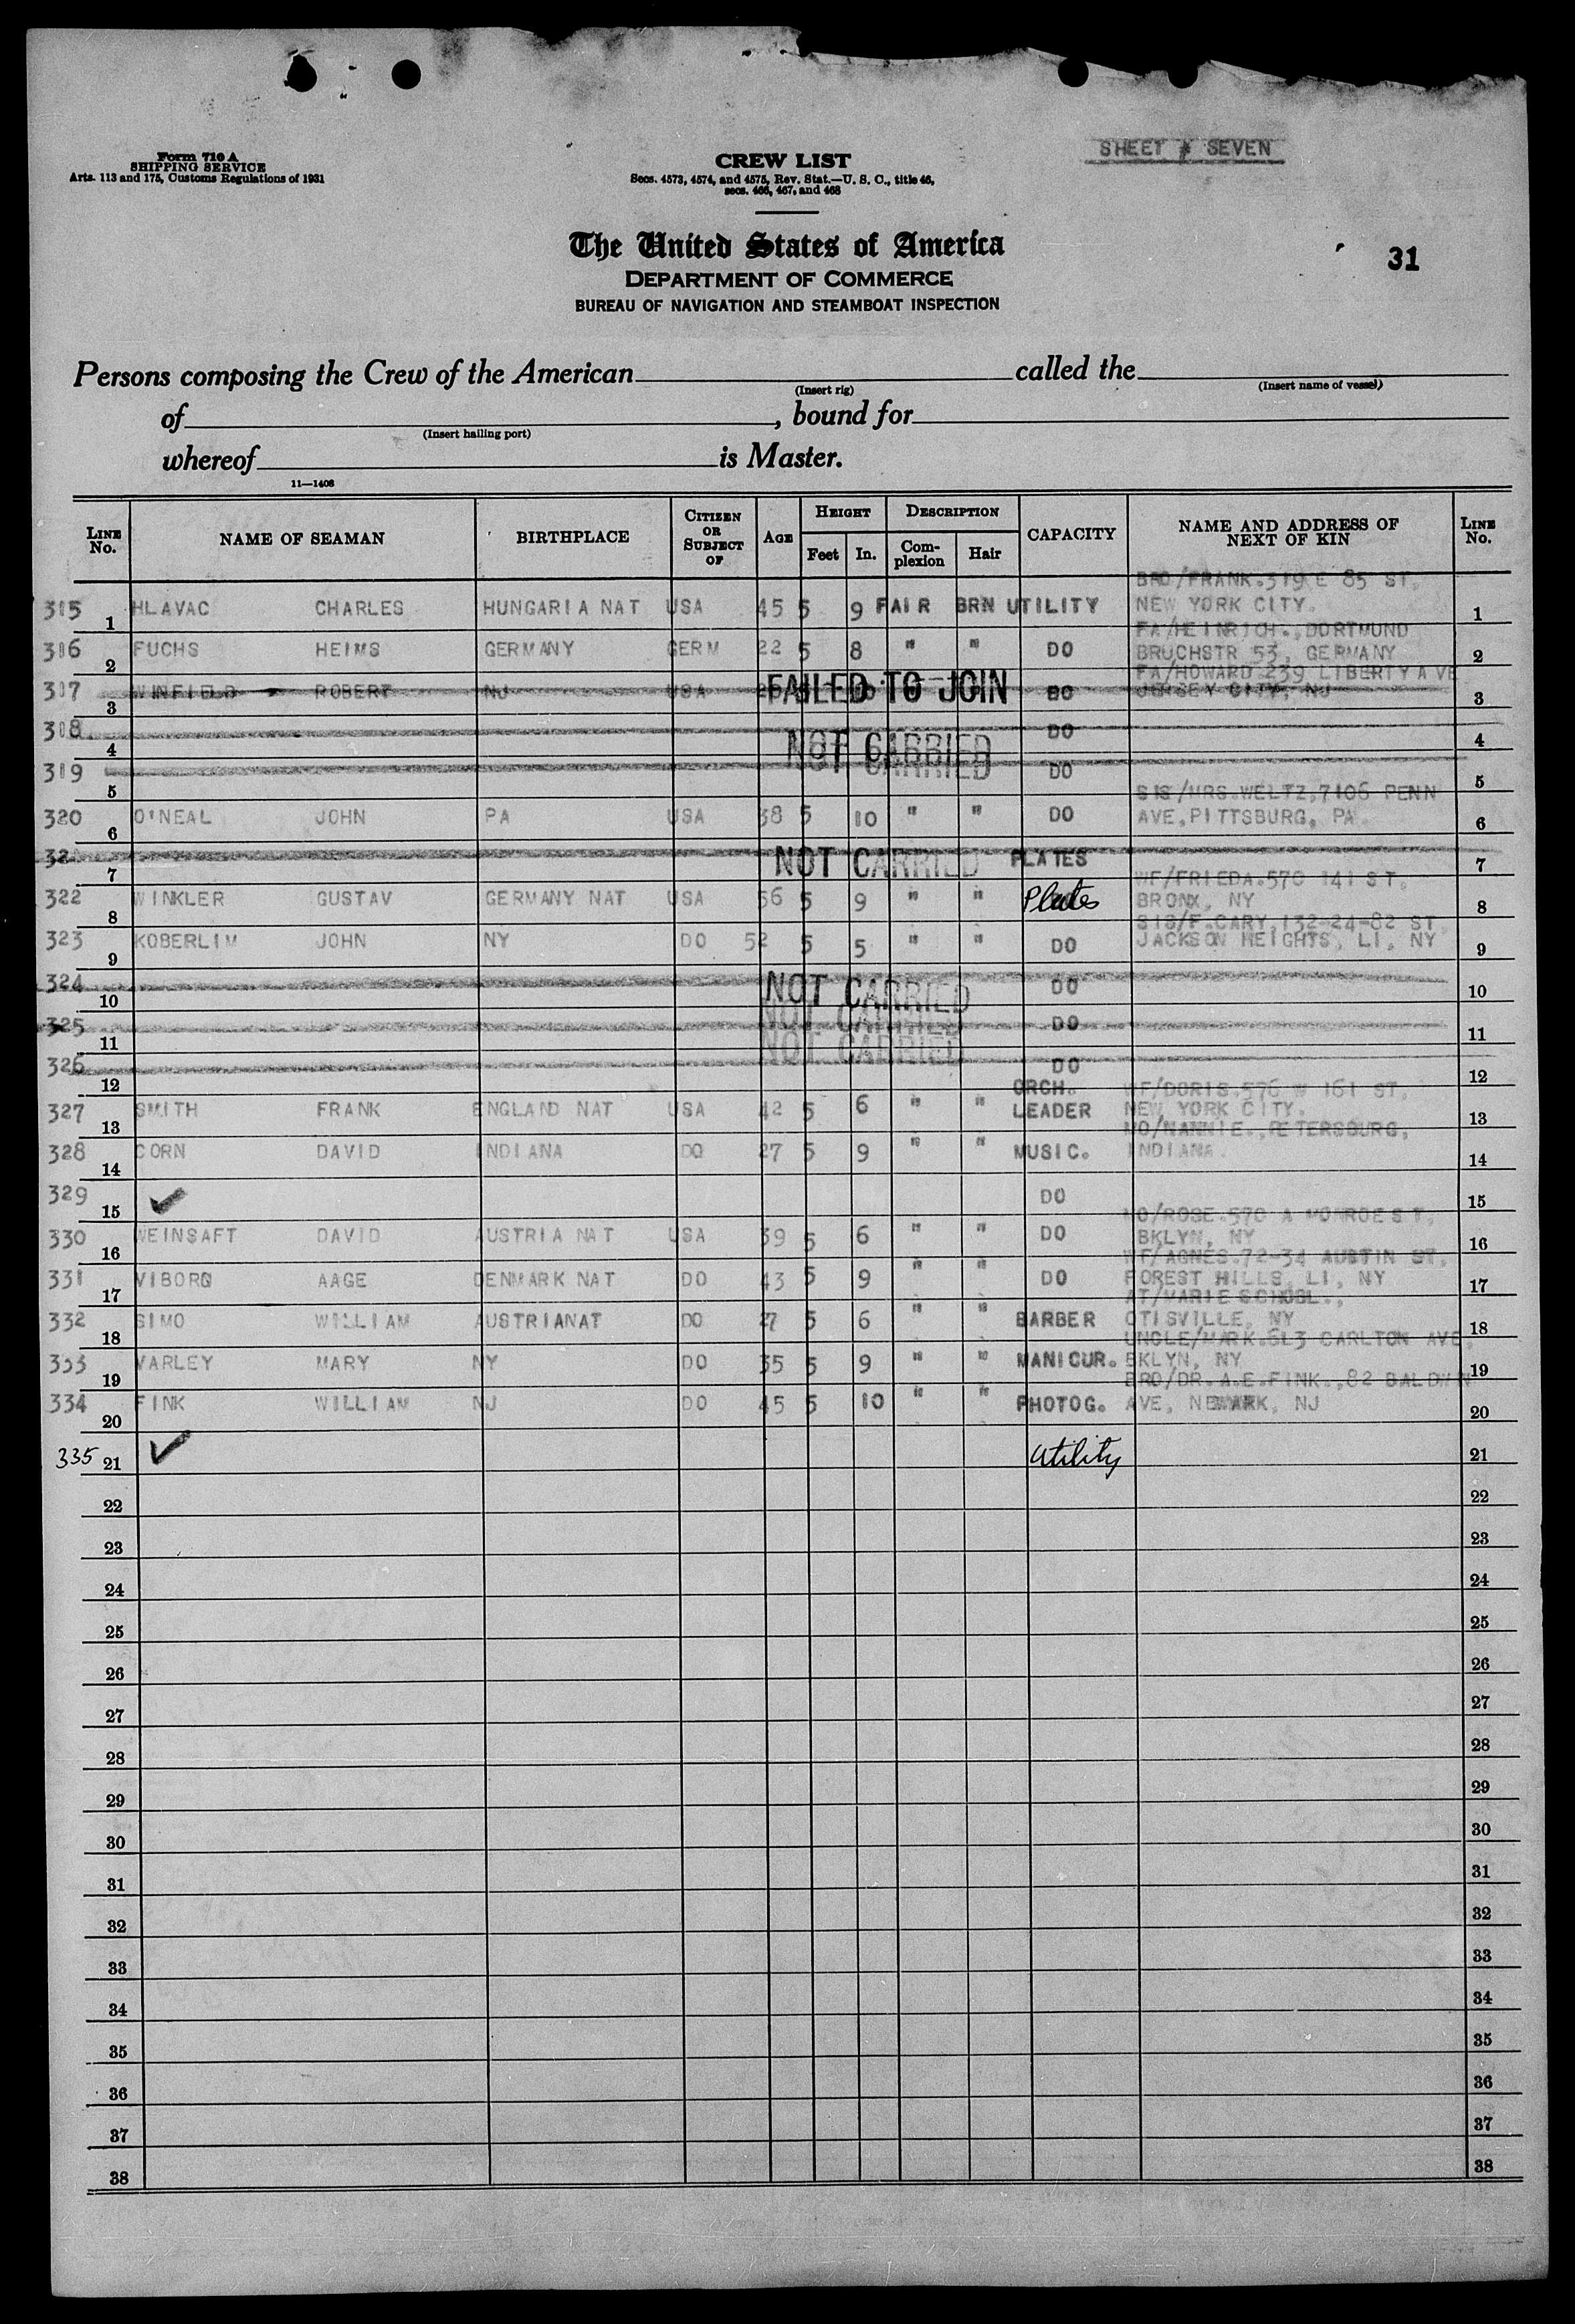 Form 710 A
SHIPPING SERVICE
Arts. 113 and 175, Customs Regulations of 1931
CREW LIST
Secs. 4573, 4574, and 4575, Rev. Stat.—U. S. C., title 46,
secs. 466, 467, and 468
SHEET # SEVEN
The United States of America
DEPARTMENT OF COMMERCE
BUREAU OF NAVIGATION AND STEAMBOAT INSPECTION
31
Persons composing the Crew of the American called the
(Insert rig) (Insert name of vessel)
of , bound for
(Insert hailing port)
whereof is Master.
11—1408
LINE No. NAME OF SEAMAN BIRTHPLACE CITIZEN OR SUBJECT OF AGE HEIGHT Feet In. DESCRIPTION Complexion Hair CAPACITY NAME AND ADDRESS OF NEXT OF KIN LINE No.
BRO/FRANK.319 E 85 ST.
315 1 HLAVAC CHARLES HUNGARIA NAT USA 45 5 9 FAIR BRN UTILITY NEW YORK CITY. 1
FA/HEINRICH., DORTMUND
316 2 FUCHS HEIMS GERMANY GERM 22 5 8 " " DO BRUCHSTR 53, GERMANY 2
FA/HOWARD.239 LIBERTY AVE
317 3 WINFIELD ROBERT NJ USA FAILED TO JOIN DO JERSEY CITY, NJ 3
318 4 NOT CARRIED DO 4
319 5 NOT CARRIED DO 5
SIS/MRS.WELTZ,7106 PENN
320 6 O'NEAL JOHN PA USA 38 5 10 " " DO AVE,PITTSBURG, PA. 6
32 7 NOT CARRIED PLATES 7
WF/FRIEDA.570 141 ST.
322 8 WINKLER GUSTAV GERMANY NAT USA 56 5 9 " " Plates BRONX, NY 8
SIS/F.CARY,132-24-82 ST
323 9 KOBERLIM JOHN NY DO 52 5 5 " " DO JACKSON HEIGHTS, LI, NY 9
324 10 NOT CARRIED DO 10
325 11 NOT CARRIED DO 11
326 12 NOT CARRIED DO 12
ORCH. WF/DORIS.576 W 161 ST.
327 13 SMITH FRANK ENGLAND NAT USA 42 5 6 " " LEADER NEW YORK CITY. 13
MO/NANNIE., PETERSBURG,
328 14 CORN DAVID INDIANA DO 27 5 9 " " MUSIC. INDIANA. 14
329 15 ✓ DO 15
MO/ROSE.570 A MONROE ST,
330 16 WEINSAFT DAVID AUSTRIA NAT USA 39 5 6 " " DO BKLYN, NY 16
WF/AGNES.72-34 AUSTIN ST,
331 17 VIBORG AAGE DENMARK NAT DO 43 5 9 " " DO FOREST HILLS, LI, NY 17
AT/MARIE SCHOBL.,
332 18 SIMO WILLIAM AUSTRIANAT DO 27 5 6 " " BARBER OTISVILLE, NY 18
UNCLE/MARK.613 CARLTON AVE,
333 19 VARLEY MARY NY DO 35 5 9 " " MANICUR. BKLYN, NY 19
BRO/DR. A.E.FINK.,82 BALDWIN
334 20 FINK WILLIAM NJ DO 45 5 10 " " PHOTOG. AVE, NEWARK, NJ 20
335 21 ✓ Utility 21
22 22
23 23
24 24
25 25
26 26
27 27
28 28
29 29
30 30
31 31
32 32
33 33
34 34
35 35
36 36
37 37
38 38